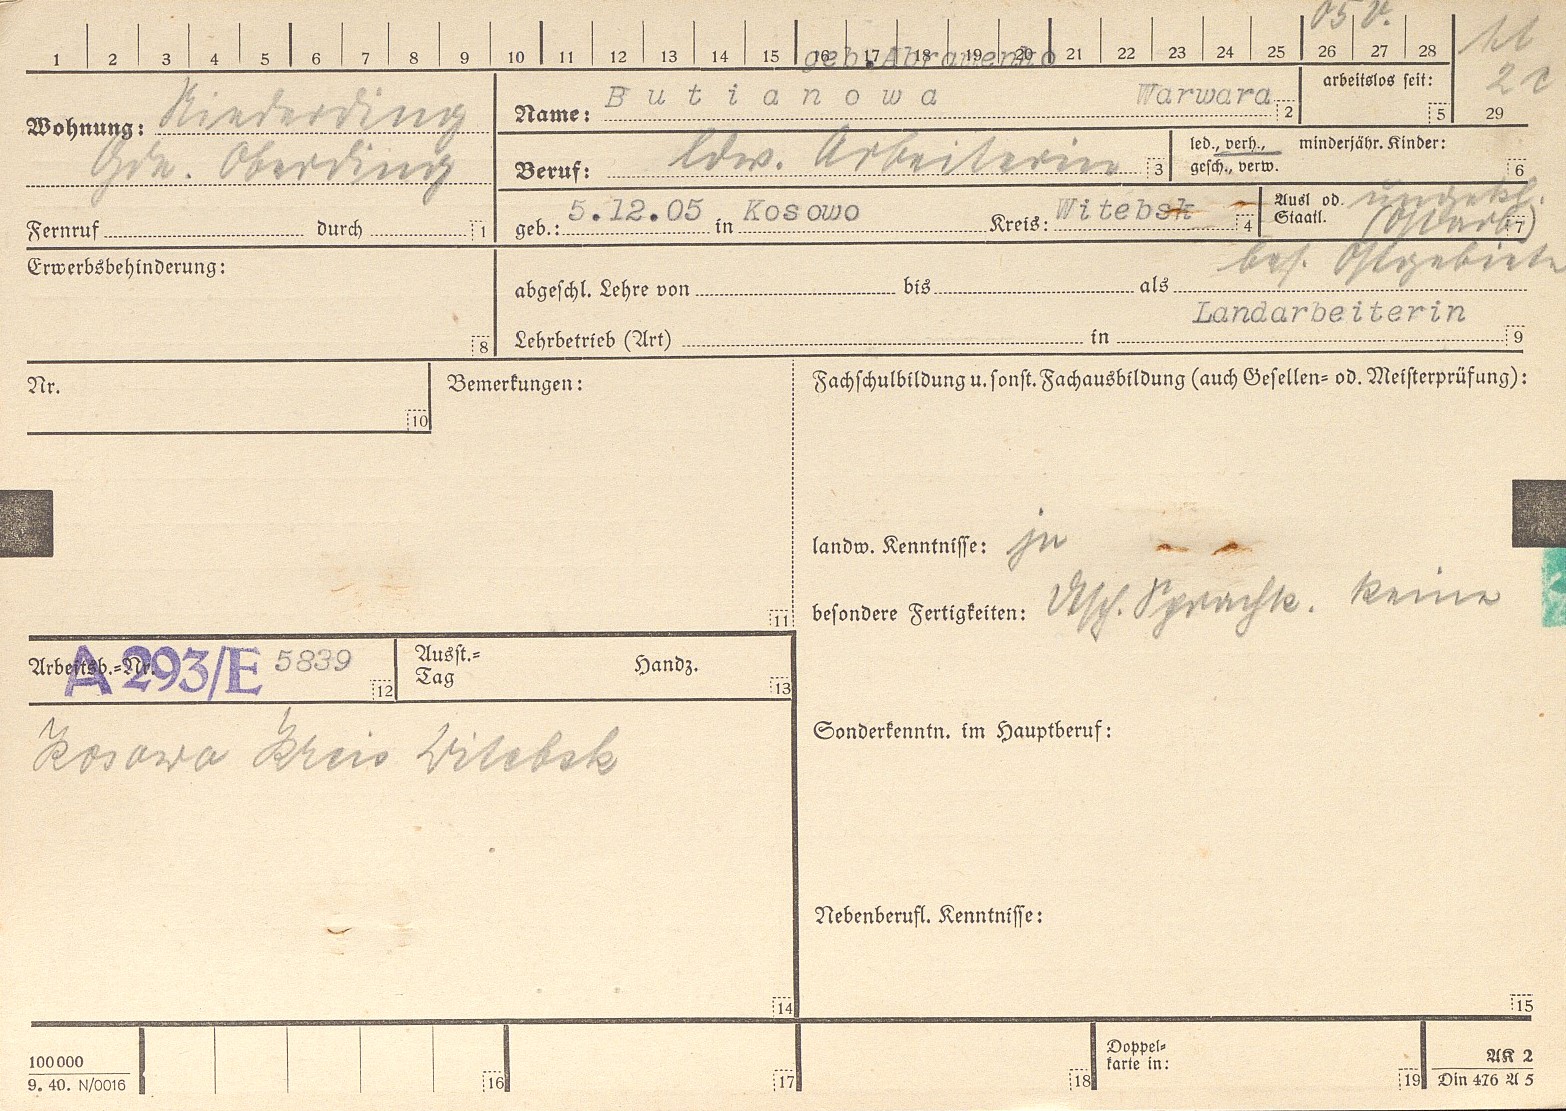 05 V.
1 2 3 4 5 6 7 8 9 10 11 12 13 14 15 16 17 18 19 20 21 22 23 24 25 26 27 28
2 c
29
geb. Abramenko
Wohnung: Niederding
Gde. Oberding
Fernruf durch 1
Name: Butianowa Warwara 2
arbeitslos seit: 5
Beruf: ldw. Arbeiterin 3
led., verh., minderjähr. Kinder:
gesch., verw. 6
geb.: 5.12.05 in Kosowo Kreis: Witebsk 4
Ausl od. ungekl.
Staatl. (Ostarb) 7
bes. Ostgebiete
Erwerbsbehinderung: 8
abgeschl. Lehre von bis als
Landarbeiterin
Lehrbetrieb (Art) in 9
Nr. 10
Bemerkungen: 11
Fachschulbildung u. sonst. Fachausbildung (auch Gesellen- od. Meisterprüfung):
landw. Kenntnisse: ja
besondere Fertigkeiten: Dtsch. Sprachk. keine
Arbeitsb.-Nr. A 293/E 5839 12
Ausst.- Handz.
Tag 13
Kosowa Kreis Witebsk
14
Sonderkenntn. im Hauptberuf:
Nebenberufl. Kenntnisse:
15
100 000
9. 40. N/0016
16 17 18
Doppel-
karte in: 19
AK 2
Din 476 A 5